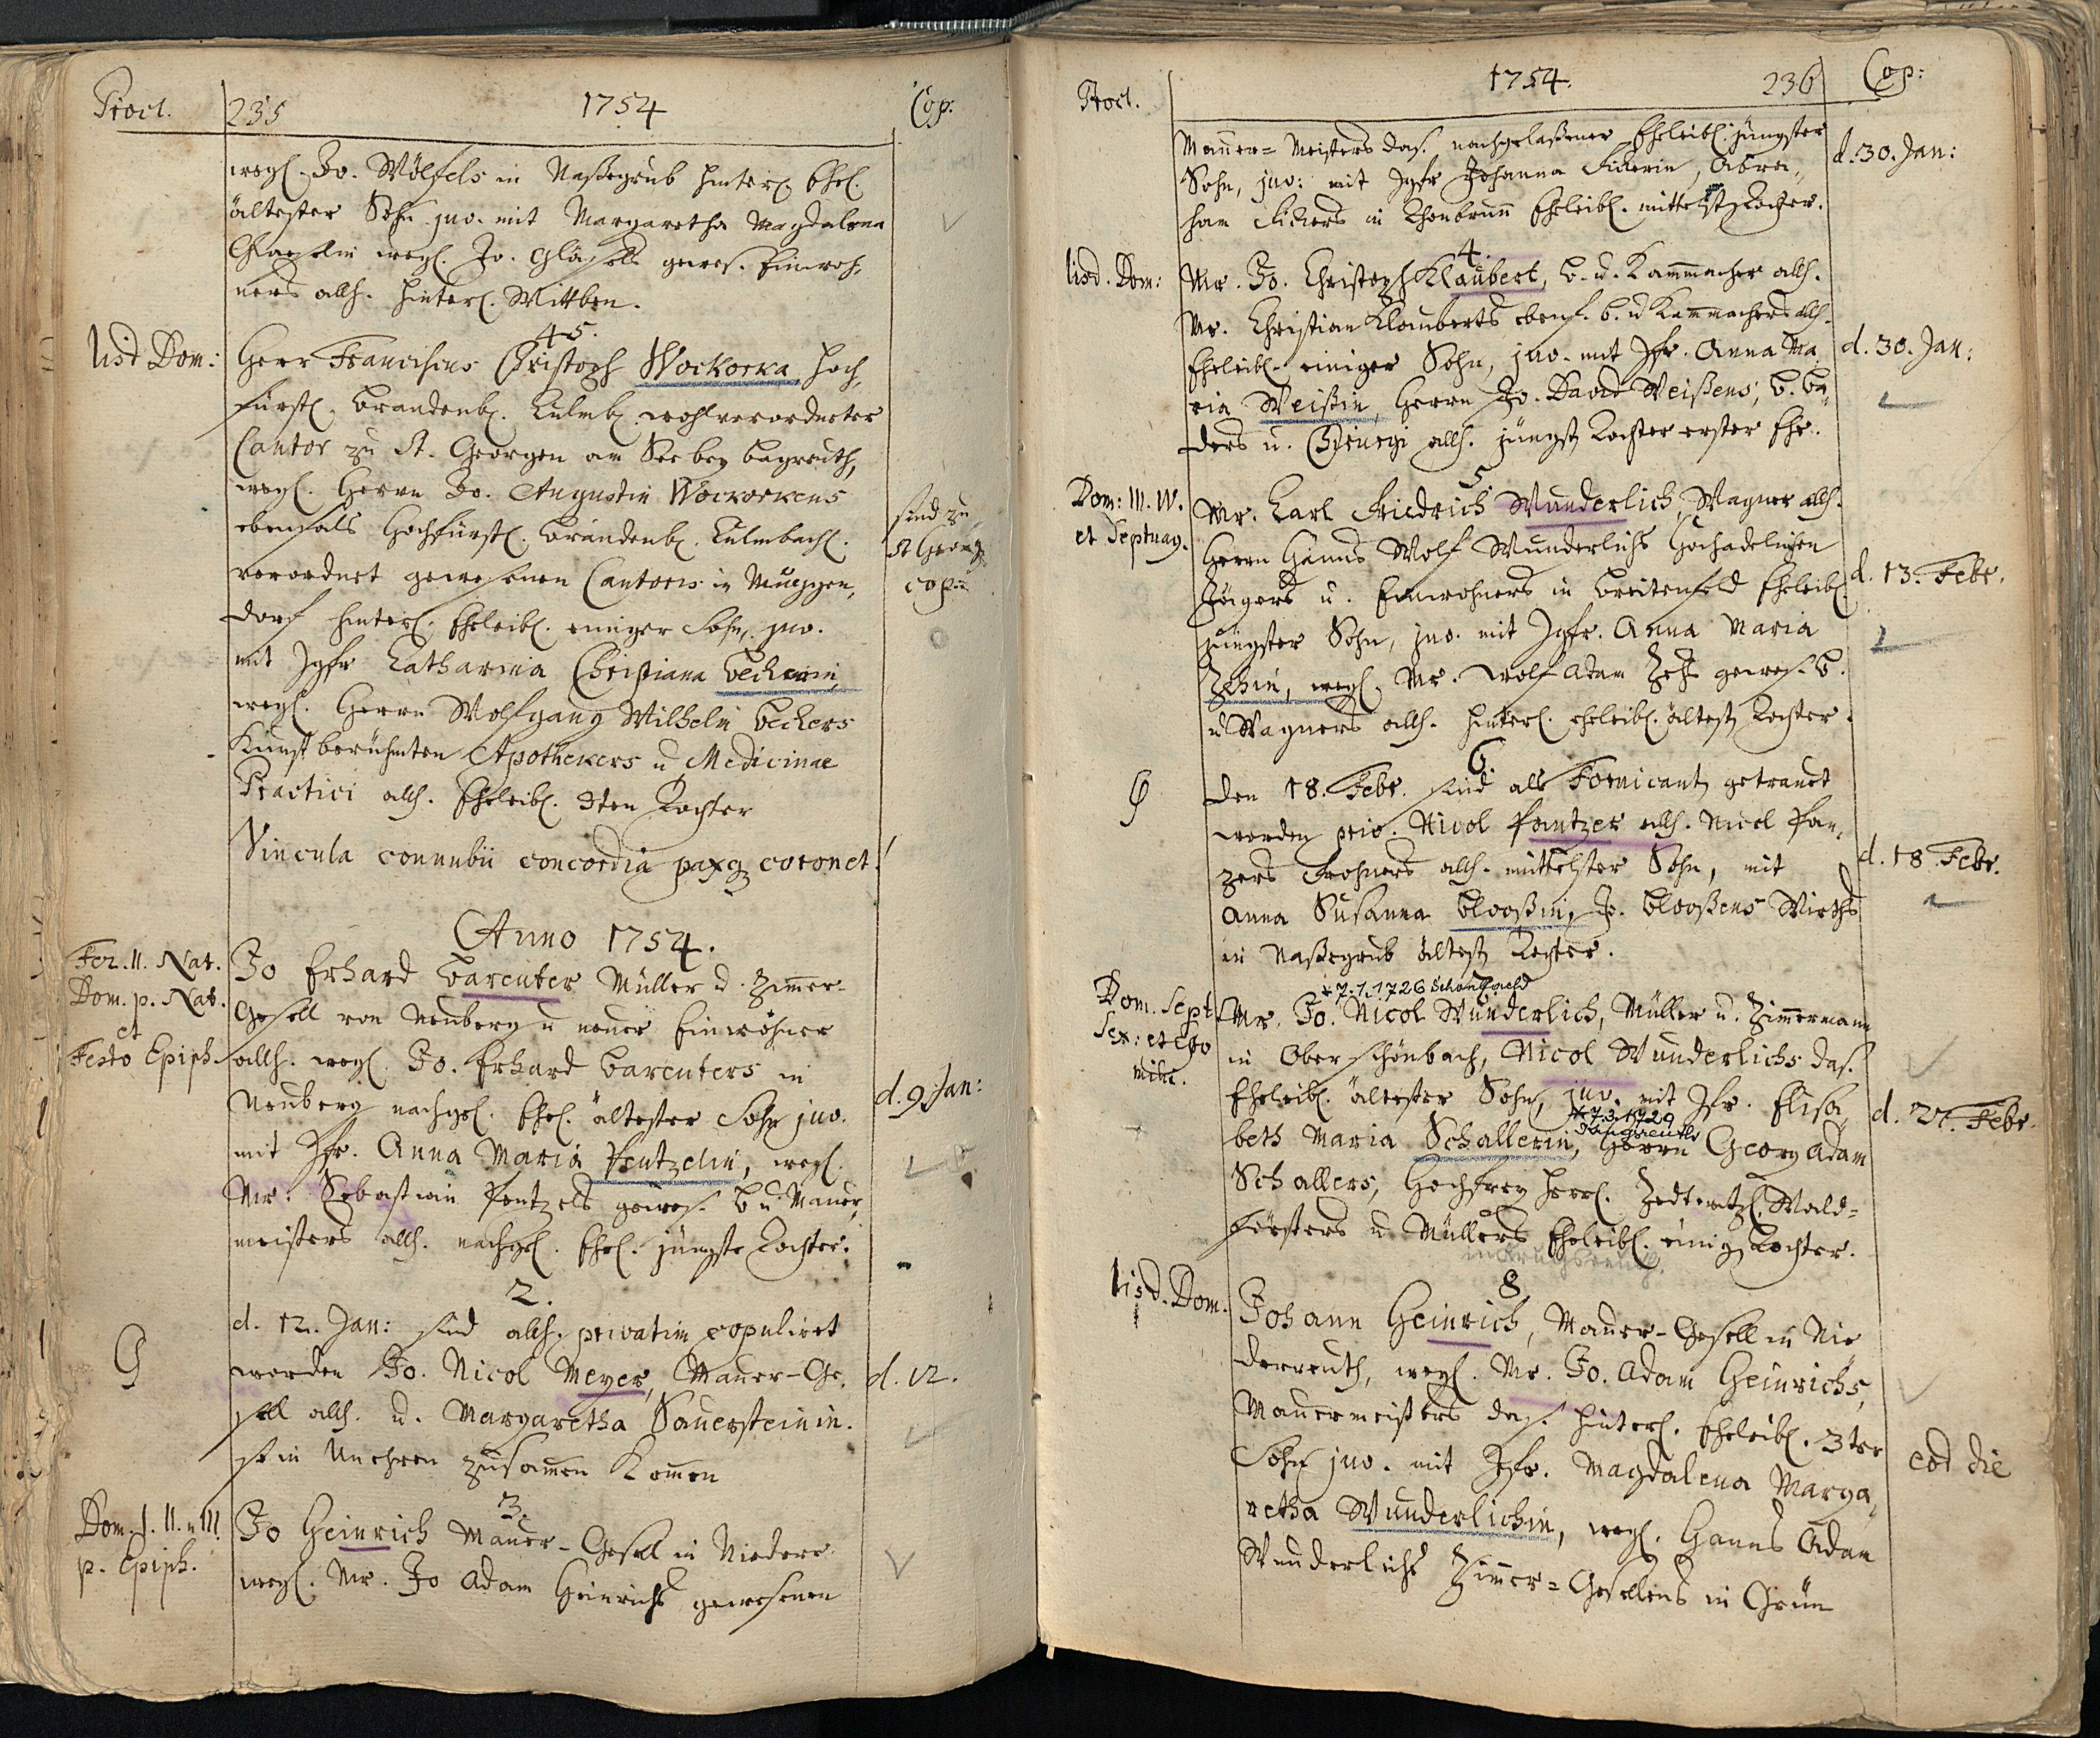 Procl. 235 1754 Cop:
wegl. Jo. Wölfels in Naßegrub hinterl. Ehel.
ältester Sohn juv. mit Margaretha Magdalena
Glaeselin wegl. Jo. Gläsels gewes. Einwoh-
ners allh. hinterl. Wittben.
45.
Iisd Dom: Herr Franciscus Christoph Wockorka, Hoch-
fürstl. Brandenb. Culmb. wohlverordneter
Cantor zu St. Georgen am See bey Bayreuth,
wegl. Herrn Jo. Augustin Wockorkens
ebenfals Hochfürstl. Brandenb. Culmbachl.
verordnet gewesenen Cantoris in Muggen-
dorf hinterl. Eheleibl. einiger Sohn, juv.
mit Jgfr Catharina Christiana Beckerin,
wegl. Herrn Wolfgang Wilhelm Beckers
Kunstberühmten Apothekers u Medicinae
Practici allh. Eheleibl. 3ten Tochter
sind zu
St Georg
cop
Vincula connubii concordia paxq coronet!
Anno 1754.
Fer. II. Nat.
Dom. p. Nat.
et
Festo Epiph.
Jo Erhard Bareuter Müller u. Zimer-
Gesell von Neuberg u neuer Einwohner
allh. wegl. Jo. Erhard Bareuters in
Neuberg nachgel. Ehel. ältester Sohn juv.
mit Jfr. Anna Maria Pentzelin, wegl.
Mr. Sebastian Pentzels gewes. B u. Mauer-
meisters allh. nachgel. Ehel. jüngste Tochter.
d. 9. Jan:
2.
d. 12. Jan: sind allh. privatim copuliret
worden Jo. Nicol Meyer, Mauer-Ge-
sell allh. u. Margaretha Sauersteinin.
so in Unehren zusamen komen
d. 12.
3.
Dom. I. II. u III.
p. Epiph.
Jo Heinrich Mauer-Gesell in Niederr.
wegl. Mr. Jo Adam Heinrichs gewesenen
Procl. 1754. 236 Cop:
Maurer-Meisters das. nachgelaßener Eheleibl. jüngster
Sohn, juv: mit Jgfr Johanna Fickerin, Abra-
ham Fickers in Thonbrunn Eheleibl. mittelst Tochter.
d. 30. Jan:
4.
Iisd. Dom: Mr. Jo. Christoph Klaubert, B. u. Kammacher allh.
Mr. Christian Klauberts ebenf. B. u Kammachers allh.
Eheleibl. einiger Sohn, juv. mit Jfr. Anna Ma-
ria Weißin, Herrn Jo. David Weißens, B. Ba-
ders u. Chirurgi allh. jüngst Tochter erster Ehe.
d. 30. Jan:
5.
Dom: III. IV.
et Septuag.
Mr. Carl Friedrich Wunderlich, Wagner allh.
Herrn Hanns Wolf Wunderlichs Hochadelichen
Jägers u. Einwohners in Breitenfeld Eheleibl.
jüngster Sohn, juv. mit Jgfr. Anna Maria
Zehin, wegl. Mr. Wolf Adam Zeh gewes. B.
u Wagners allh. hinterl. eheleibl. ältest Tochter.
d. 13. Febr.
6.
Den 18. Febr. sind als Fornicant getrauet
worden priv. Nicol Pantzer allh. Nicol Pan-
zers Frohners allh. mittelster Sohn, mit
Anna Susanna Blooßin, Jo. Blooßens Wirths
in Naßegrub ältest Tochter.
d. 18. Febr.
* 7.1.1726 Schönbach
Dom. Sept
Sex: et Esto
mihi.
Mr. Jo. Nicol Wunderlich, Müller u. Zimmermann
in Oberschönbach, Nicol Wunderlichs das.
Eheleibl. ältester Sohn, juv. mit Jfr. Elisa-
* 7.3.1729
beth Maria Schallerin, Herrn Georg Adam
Schallers, Hochfrey Herrl. Zedtwitzl. Wald-
Försters u. Müllers Eheleibl. einig Tochter.
d. 27. Febr.
8.
Iisd. Dom. Johann Heinrich, Maurer-Gesell in Nie-
derreuth, wegl. Mr. Jo. Adam Heinrichs,
Mauermeisters das. hinterl. Eheleibl. 3ter
Sohn juv. mit Jfr. Magdalena Marga-
retha Wunderlichin, wegl. Hanns Adam
Wunderlichs Zimer-Gesellens in Grün
eod die